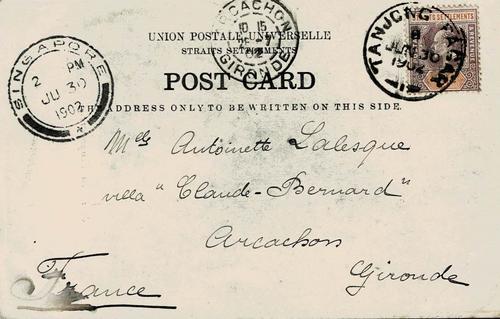 UNION POSTALE UNIVERSELLE
STRAITS SETTLEMENTS
POST CARD
ADDRESS ONLY TO BE WRITTEN ON THIS SIDE.
SINGAPORE
2 PM
JU 30
1902
ARCACHON
GIRONDE
TANJONG PAGAR
JUN 30
1902
SETTLEMENTS
Antoinette Lalesque
villa "Claude-Bernard"
Arcachon
Gironde
France